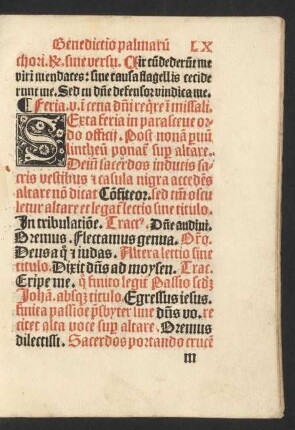 Benedictio palmarū LX
chori. ⁊c. sine versu. Circūdederūt me
viri mendaces: sine causa flagellis cecide
runt me. Sed tu dn̄e defensor vindica me.
¶ Feria. v. i cena dn̄i reqͥre ī missali.
SExta feria in parasceue or
do officij. Post nonā punī
lintheū ponat sup altare.
Deīn sacerdos indutis sa
cris vestibus ⁊ casula nigra accedēs
altare nō dicat Cōfiteor. sed tm̄ oscu
letur altare et legat̄ lectio sine titulo.
In tribulatiōe. Tract⁹. Dn̄e audiui.
Oremus. Flectamus genua. Or̄o.
Deus a q̄ ⁊ iudas. Altera lectio sine
titulo. Dixit dn̄s ad moysen. Trac.
Eripe me. q̄ finito legit̄ Passio scd̄ꝫ
Johā. absqꝫ titulo. Egressus iesus.
finita passiōe p̄sbyter sine dn̄s vo. re
citet alta voce sup altare. Oremus
dilectissi. Sacerdos portando crucē
m